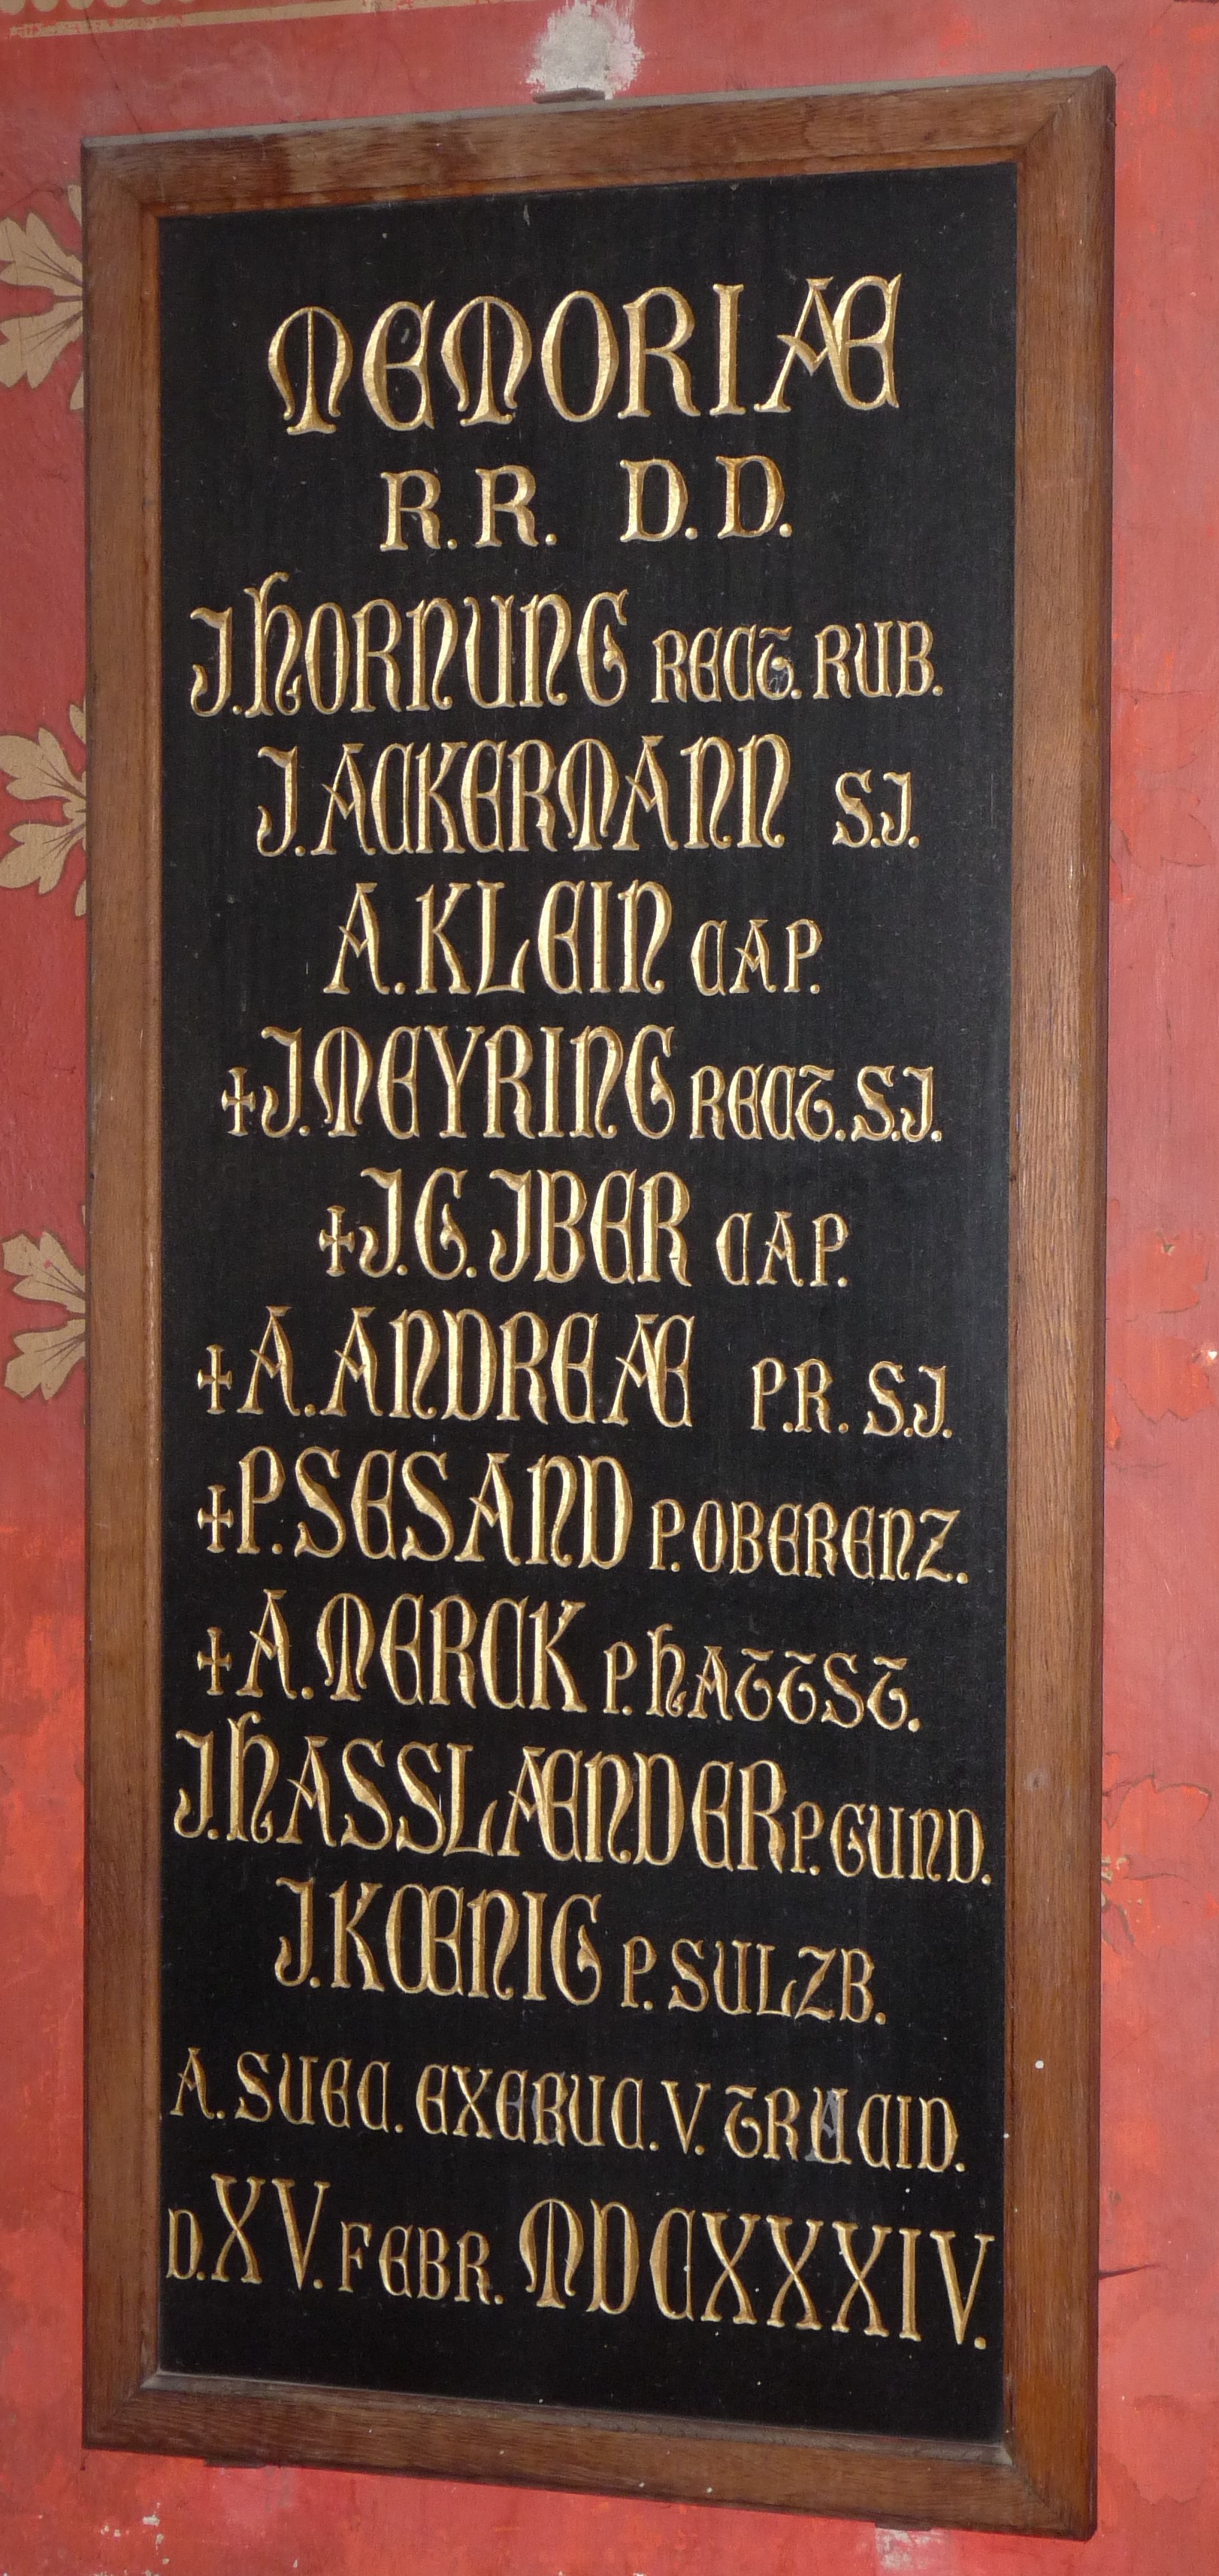 MEMORIÆ
R.R. D.D.
J. HORNUNG RECT. RUB.
J. ACKERMANN S.J.
A. KLEIN CAP.
+J. MEYRING RECT. S.J.
+J.G. JBER CAP.
+A. ANDREÆ P.R. S.J.
+P. SESAND P. OBERENZ.
+A. MERCK P. HATTST.
J. HASSLÆNDER P. GUND.
J. KŒNIG P. SULZB.
A. SUEC. EXERUC. V. TRUCID.
D. XV. FEBR. MDCXXXIV.